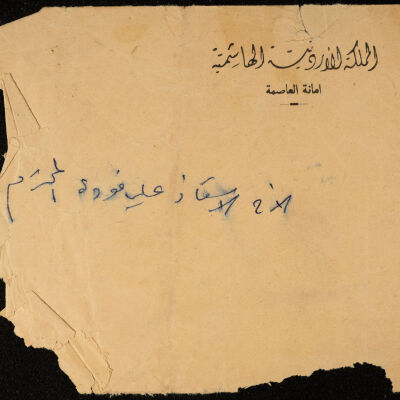 المملكة الأردنية الهاشمية
امانة العاصمة
الاخ الاستاذ علي فودة المحترم